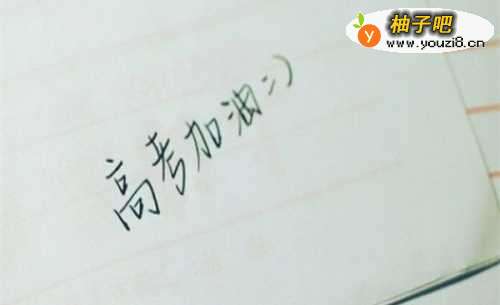 柚子吧
www.youzi8.cn
高考加油=)